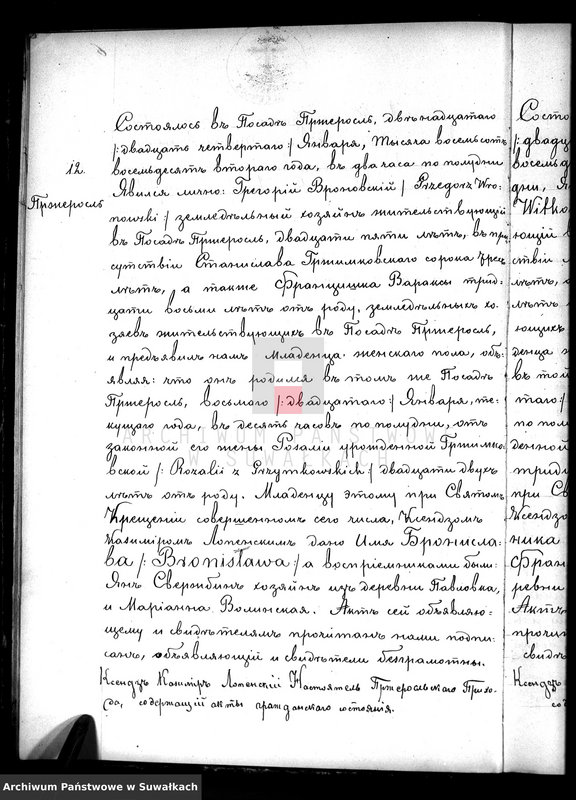 12.
Пржеросль
Состоялось въ Посадѣ Пржеросль, двѣнадцатаго
/:двадцать четвертаго:/ Января, тысяча восемьсотъ
восемьдесятъ втораго года, въ два часа по полудни
Явился лично: Грегорій Вроновскій / Przegorz Wro-
nowski:/ земледѣльный хозяинъ жительствующій
въ Посадѣ Пржеросль, двадцати пяти лѣтъ, въ при-
сутствіи Станислава Гржимковскаго сорока трехъ
лѣтъ, а также Францишка Вараксы трид-
цати восьми лѣтъ отъ роду, земледѣльныхъ хо-
зяевъ жительствующихъ въ Посадѣ Пржеросль,
и предъявилъ намъ Младенца женскаго пола, объ-
являя: что онъ родился въ томъ же Посадѣ
Пржеросль, восьмаго /:двадцатаго:/ Января, те-
кущаго года, въ десять часовъ по полудни, отъ
законной его жены Розаліи урожденной Гржимков-
ской /: Rozalii z Przymkowskich / двадцати двухъ
лѣтъ отъ роду. Младенцу этому при Святомъ
Крещеніи совершенномъ сего числа, Ксендзомъ
Казиміромъ Лопенскимъ дано Имя Бронисла-
ва /: Bronisława:/ а воспріемниками были
Янъ Свержбинъ хозяинъ изъ деревни Павловка,
и Маріанна Волинская. Актъ сей объявляю-
щему и свидѣтелямъ прочитанъ нами подпи-
санъ, объявляющій и свидѣтели безграмотны.
Ксендзъ Казиміръ Лопенскій Настоятель Пржеросльскаго Прихо-
да, содержащій акты гражданскаго состоянія.
ARCHIWUM PAŃSTWOWE
W SUWAŁKACH
Archiwum Państwowe w Suwałkach